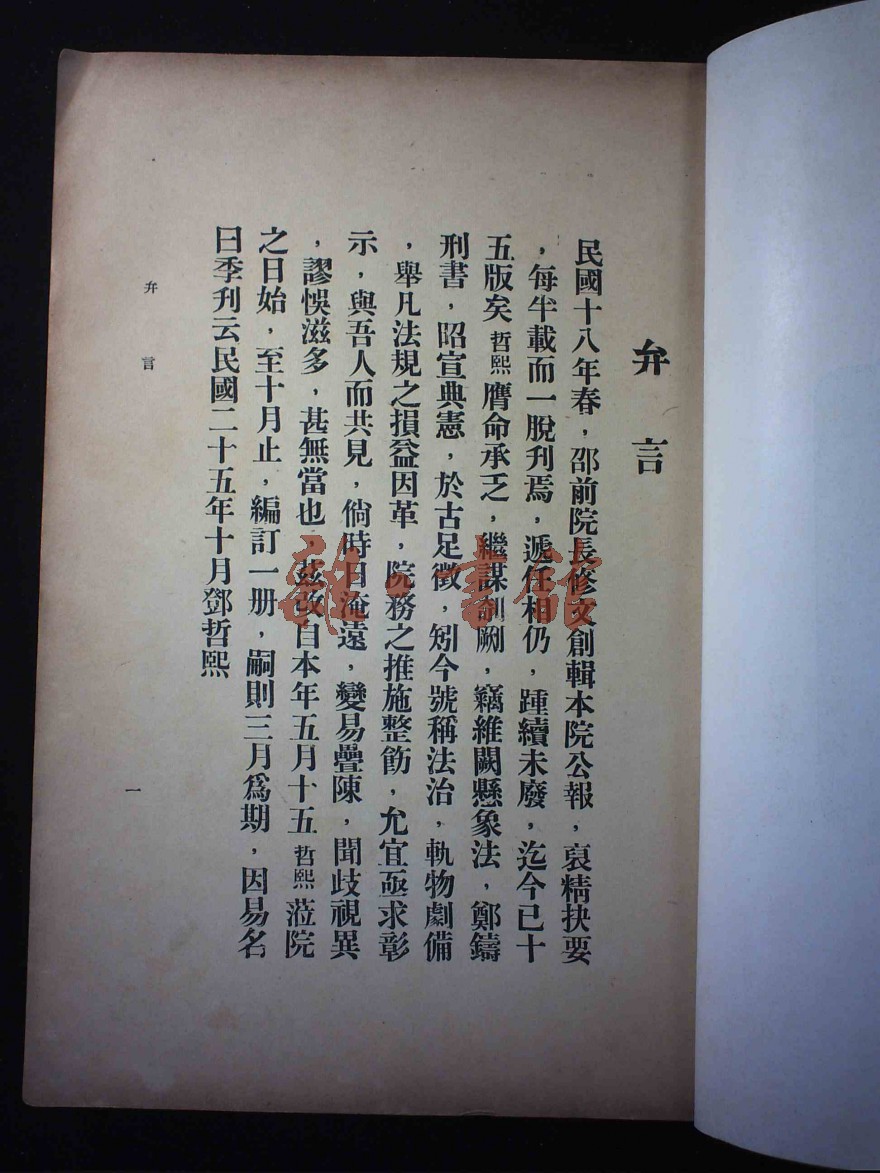 弁言
民國十八年春，邵前院長修文創輯本院公報，裒精抉要
，每半載而一脫刋焉，遞任相仍，踵續未廢，迄今已十
五版矣哲熙膺命承乏，繼謀訓闕，竊維闕懸象法，鄭鑄
刑書，昭宣典憲，於古足徵，矧今號稱法治，軌物劇備
，舉凡法規之損益因革，院務之推施整飭，允宜亟求彰
示，與吾人而共見，倘時日淹遠，變易疊陳，聞歧視異
，謬悞滋多，甚無當也，茲改自本年五月十五哲熙蒞院
之日始，至十月止，編訂一册，嗣則三月爲期，因易名
曰季刋云民國二十五年十月鄧哲熙
弁言
一
雜·書館